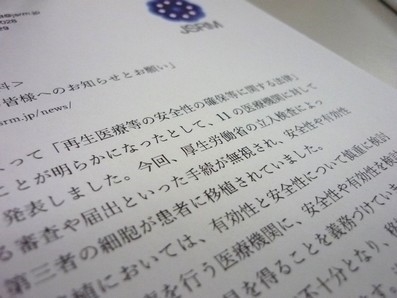 @jsrm.jp
JSRM
皆様へのお知らせとお願い」
srm.jp/news/
よって「再生医療等の安全性の確保等に関する法律」
ことが明らかになったとして、11の医療機関に対して
発表しました。今回、厚生労働省の立入検査によっ
る審査や届出といった手続が無視され、安全性や有効性
第三者の細胞が患者に移植されていました。
植においては、有効性と安全性について慎重に検討
を行う医療機関に、安全性や有効性を検
を得ることを義務づけていま
不十分となり、移